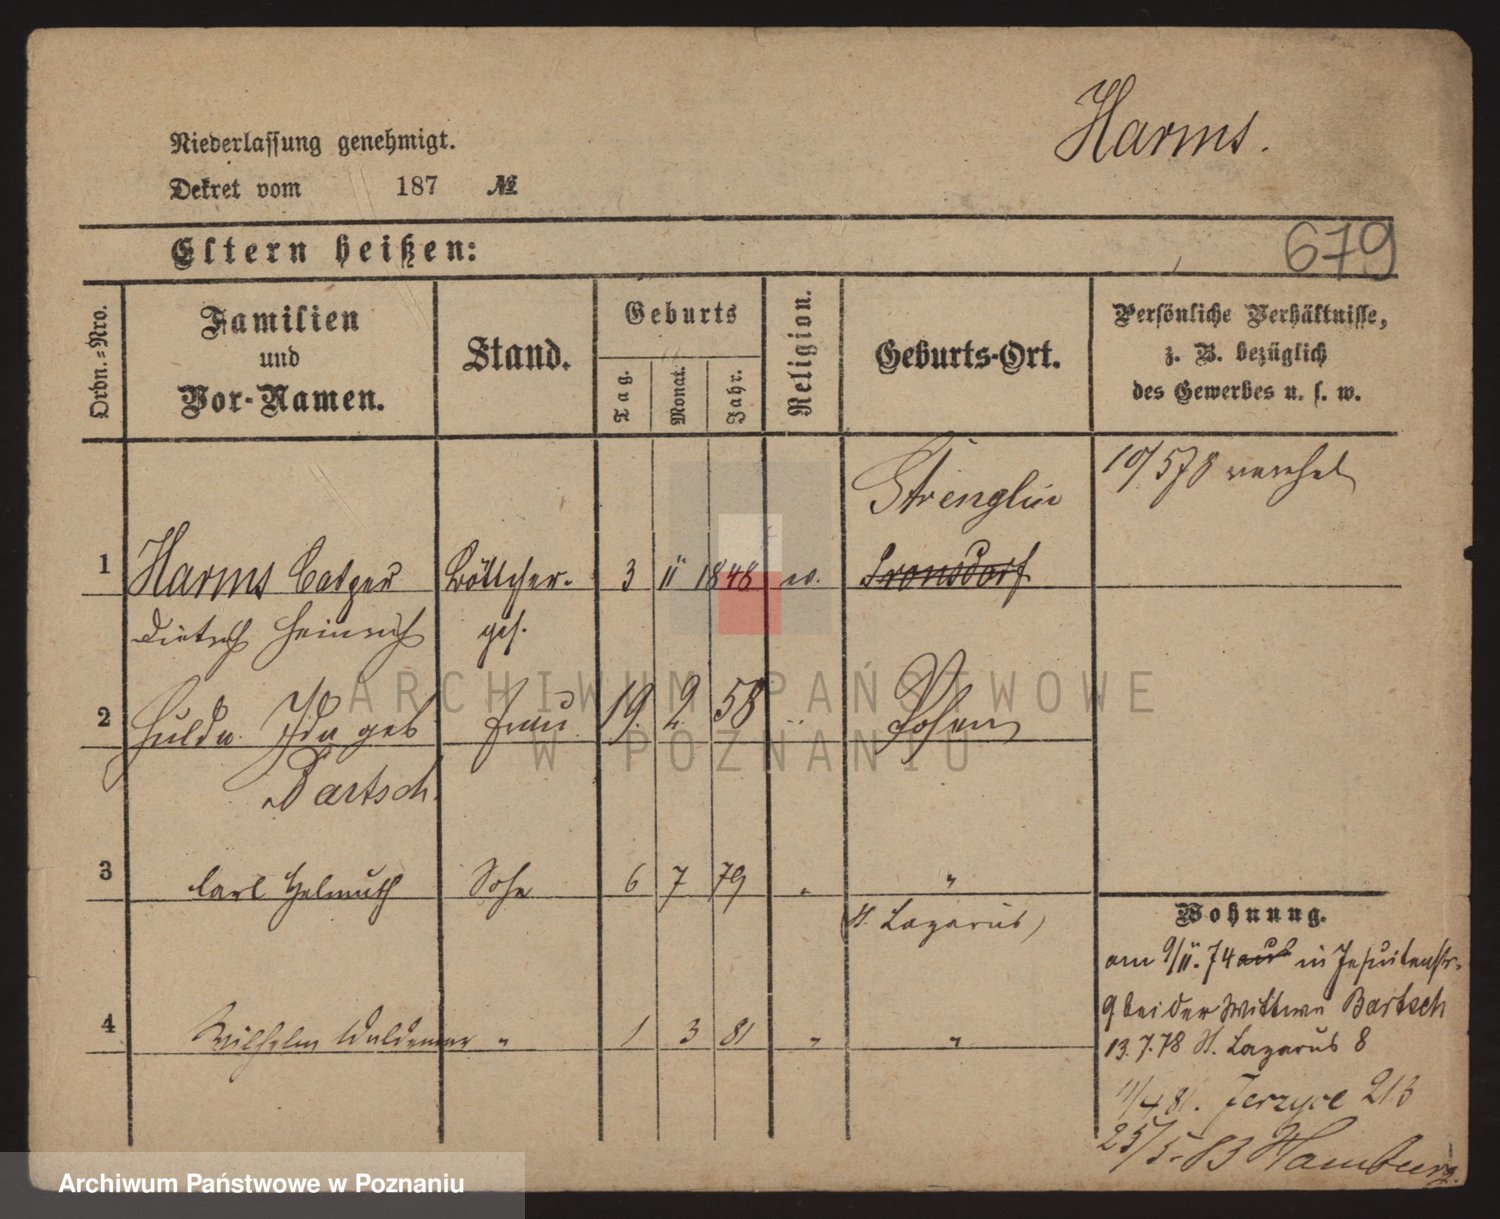 Harms.
Niederlassung genehmigt.
Dekret vom 187 №
Eltern heißen:
679
Ordn.-Nro.
Familien
und
Vor-Namen.
Stand.
Geburts
Tag.
Monat.
Jahr.
Religion.
Geburts-Ort.
Persönliche Verhältnisse,
z. B. bezüglich
des Gewerbes u. s. w.
Strenglin
10/578 verehel
1 Harms Böttcher- 3 11 1848 ev. Tronsdorf
Dietrich Heinrich ges.
2 Hulda Ida geb Frau 19. 2. 58 " Posen
Bartsch
3 Carl Helmuth Sohn 6 7 79 " "
(St. Lazarus)
4 Wilhelm Waldemar " 1 3 81 " "
Wohnung.
am 9/11.74 aus in Jesuitenstr.
9 bei der Wittwe Bartsch
13.7.78 St. Lazarus 8
11/4 81. Jerzyce 213
25/5.83 Hamburg.
ARCHIWUM PAŃSTWOWE
W POZNANIU
Archiwum Państwowe w Poznaniu